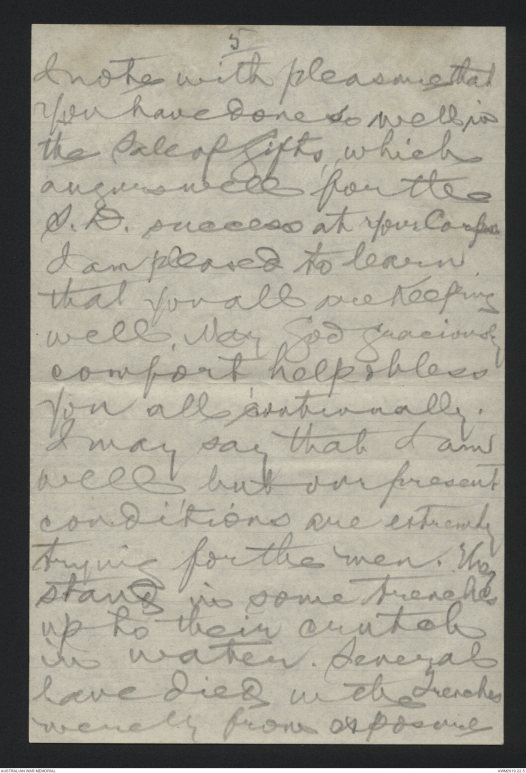 5
I note with pleasure that
you have done so well in
the Sale of Gifts, which
augurs well for the
S.D. success at your Corps
I am pleased to learn
that you all are keeping
well, May God graciously
comfort help & bless
you all continually.
I may say that I am
well but our present
conditions are extremely
trying for the men. They
stand in some trenches
up to their crutch
in water. Several
have died in the trenches
merely from exposure
AUSTRALIAN WAR MEMORIAL